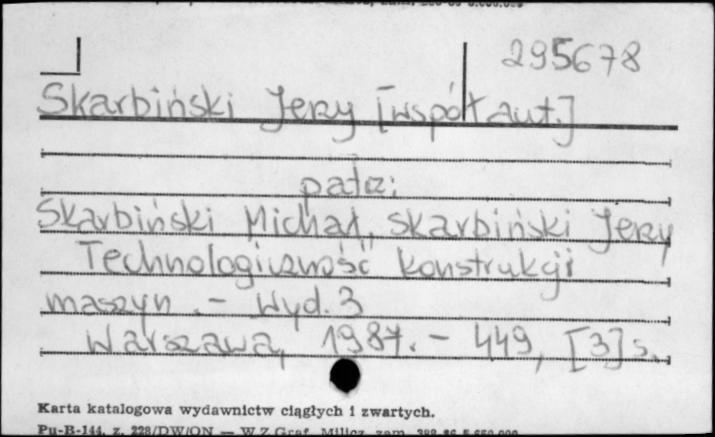 295678
Skarbiński Jerzy [współaut.]
patrz:
Skarbiński Michał, Skarbiński Jerzy
Technologiczność konstrukcji
maszyn .- Wyd. 3
Warszawa, 1987. - 449, [3] s.
Karta katalogowa wydawnictw ciągłych i zwartych.
Pu-B-144, z. 228/DW/ON — W.Z.Graf. Milicz, zam.